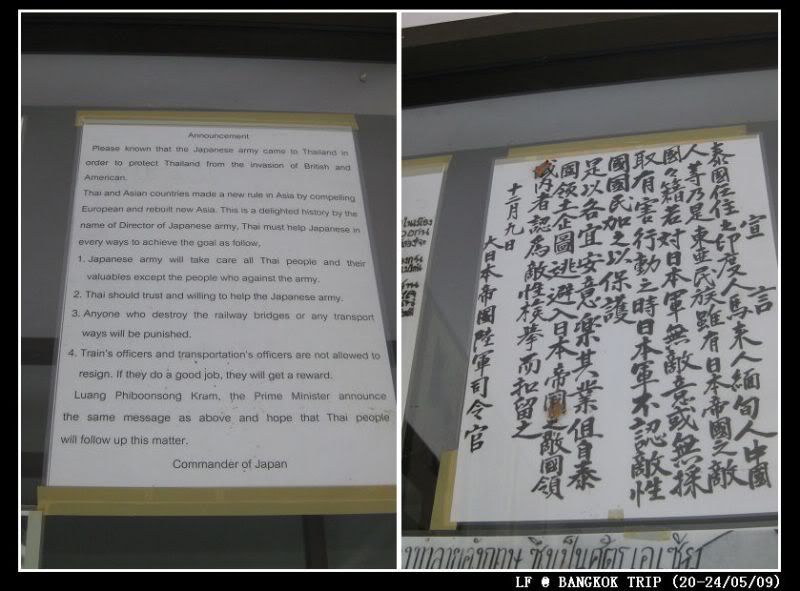 Announcement
Please known that the Japanese army came to Thailand in
order to protect Thailand from the invasion of British and
American.
Thai and Asian countries made a new rule in Asia by compelling
European and rebuilt new Asia. This is a delighted history by the
name of Director of Japanese army, Thai must help Japanese in
every ways to achieve the goal as follow,
1. Japanese army will take care all Thai people and their
valuables except the people who against the army.
2. Thai should trust and willing to help the Japanese army.
3. Anyone who destroy the railway bridges or any transport
ways will be punished.
4. Train's officers and transportation's officers are not allowed to
resign. If they do a good job, they will get a reward.
Luang Phiboonsong Kram, the Prime Minister announce
the same message as above and hope that Thai people
will follow up this matter.
Commander of Japan
宣言
泰國在住之印度人馬来人緬甸人中國
人等乃是東亜民族雖有日本帝國之敵
國々籍若對日本軍無敵意或無採
取有害行動之時日本軍不認敵性
國國民加之以保護
足以各宜安意樂其業但自泰
國領土企圖逃避入日本帝國之敵國領
域内者認為敵性検挙而扣留之
十二月九日
大日本帝國陸軍司令官
ซึ่งเป็นศัตรูเอเซีย
LF @ BANGKOK TRIP (20-24/05/09)